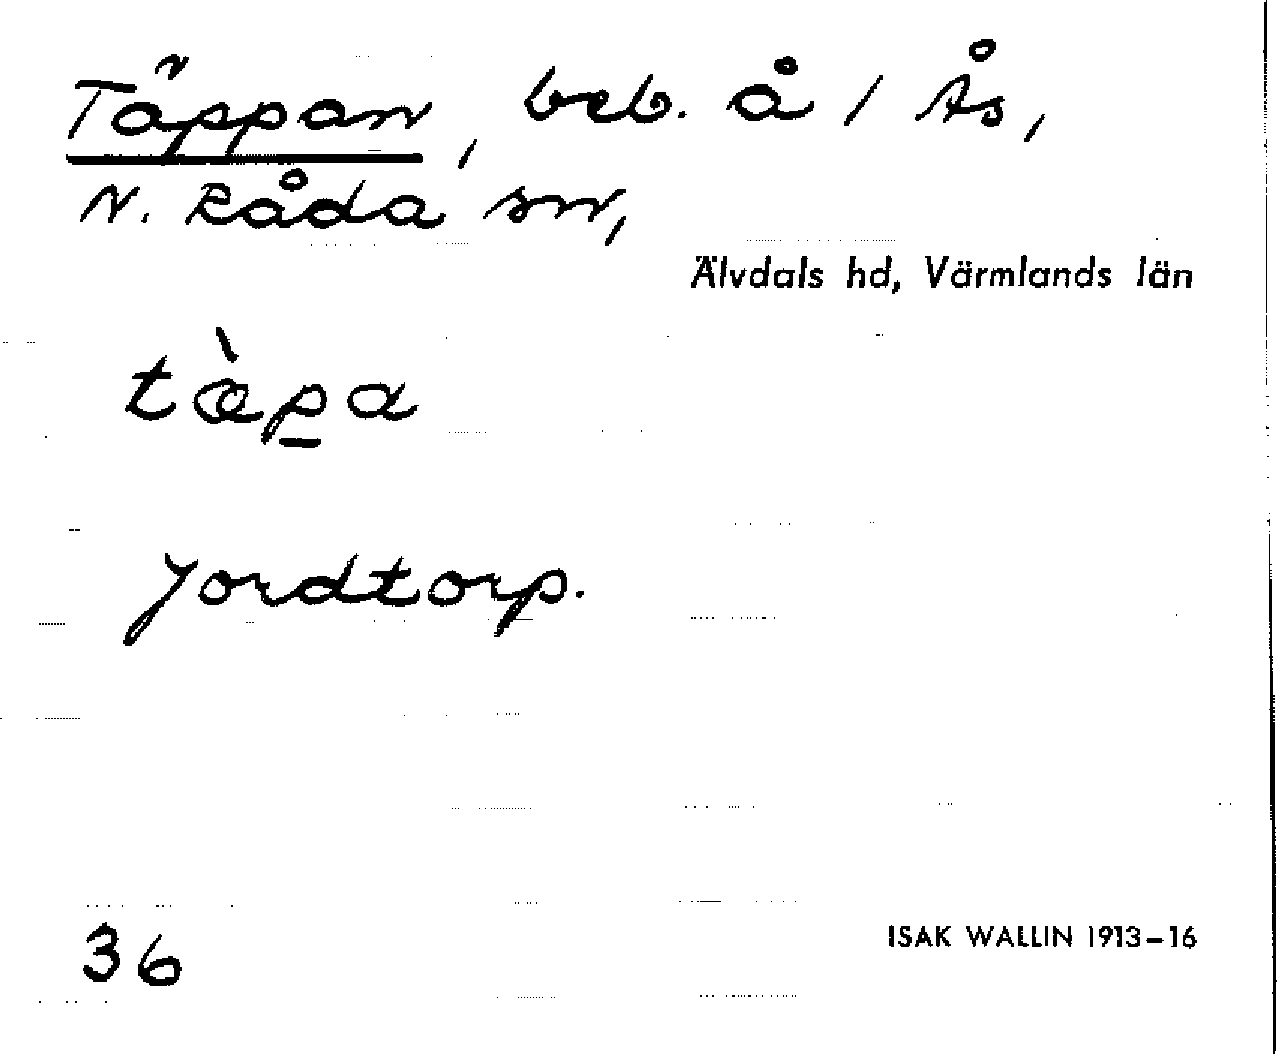 Täppan, beb. å 1 Ås,
N. Råda sn,
Älvdals hd, Värmlands län
tæ̀p̲a
Jordtorp.
36
ISAK WALLIN 1913–16